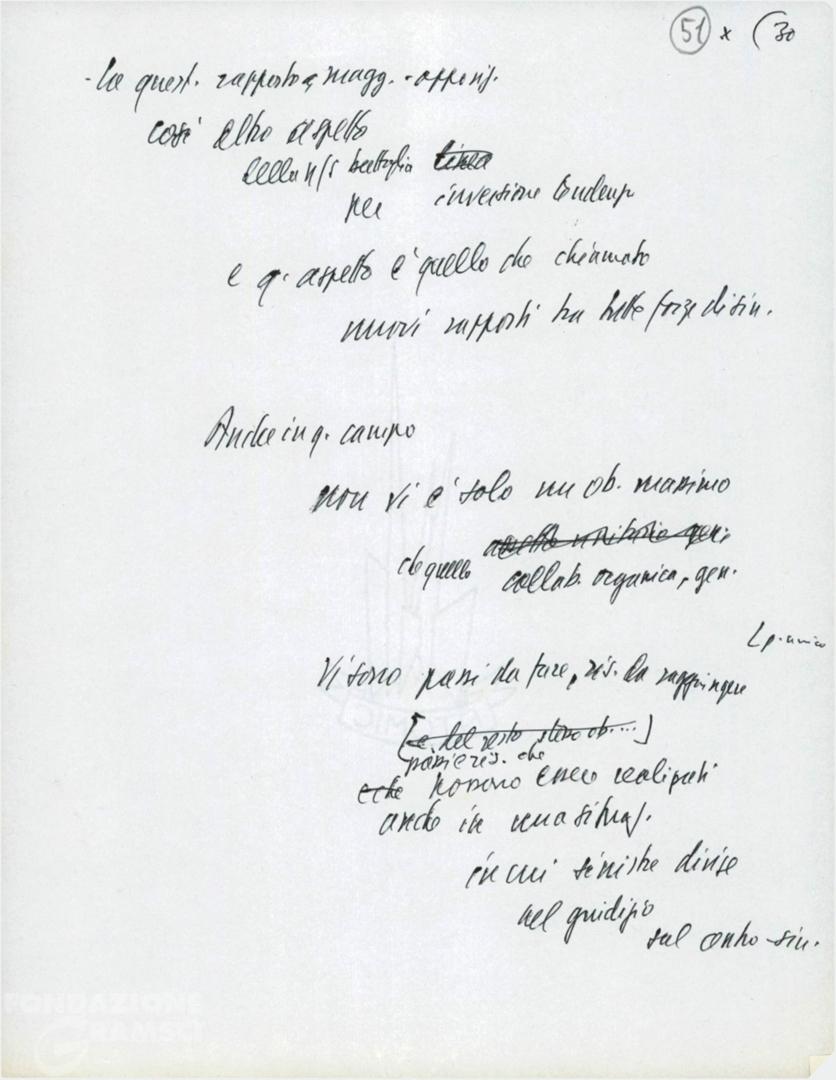 51 x (30
- La quest. rapporto magg. - opposiz.
così altro aspetto
della n/s battaglia linea
per inversione tendenza
e q. aspetto è quello che chiamato
nuovi rapporti tra tutte forze di sin.
Anche in q. campo
non vi è solo un ob. massimo
che quello
collab. organica, gen.
Vi sono passi da fare, ris. da raggiungere
[e del resto stesso ob....]
passi e ris. che
e che possono essere realizzati
anche in una situaz.
in cui sinistre divise
nel giudizio
sul centro-sin.
FONDAZIONE
GRAMSCI